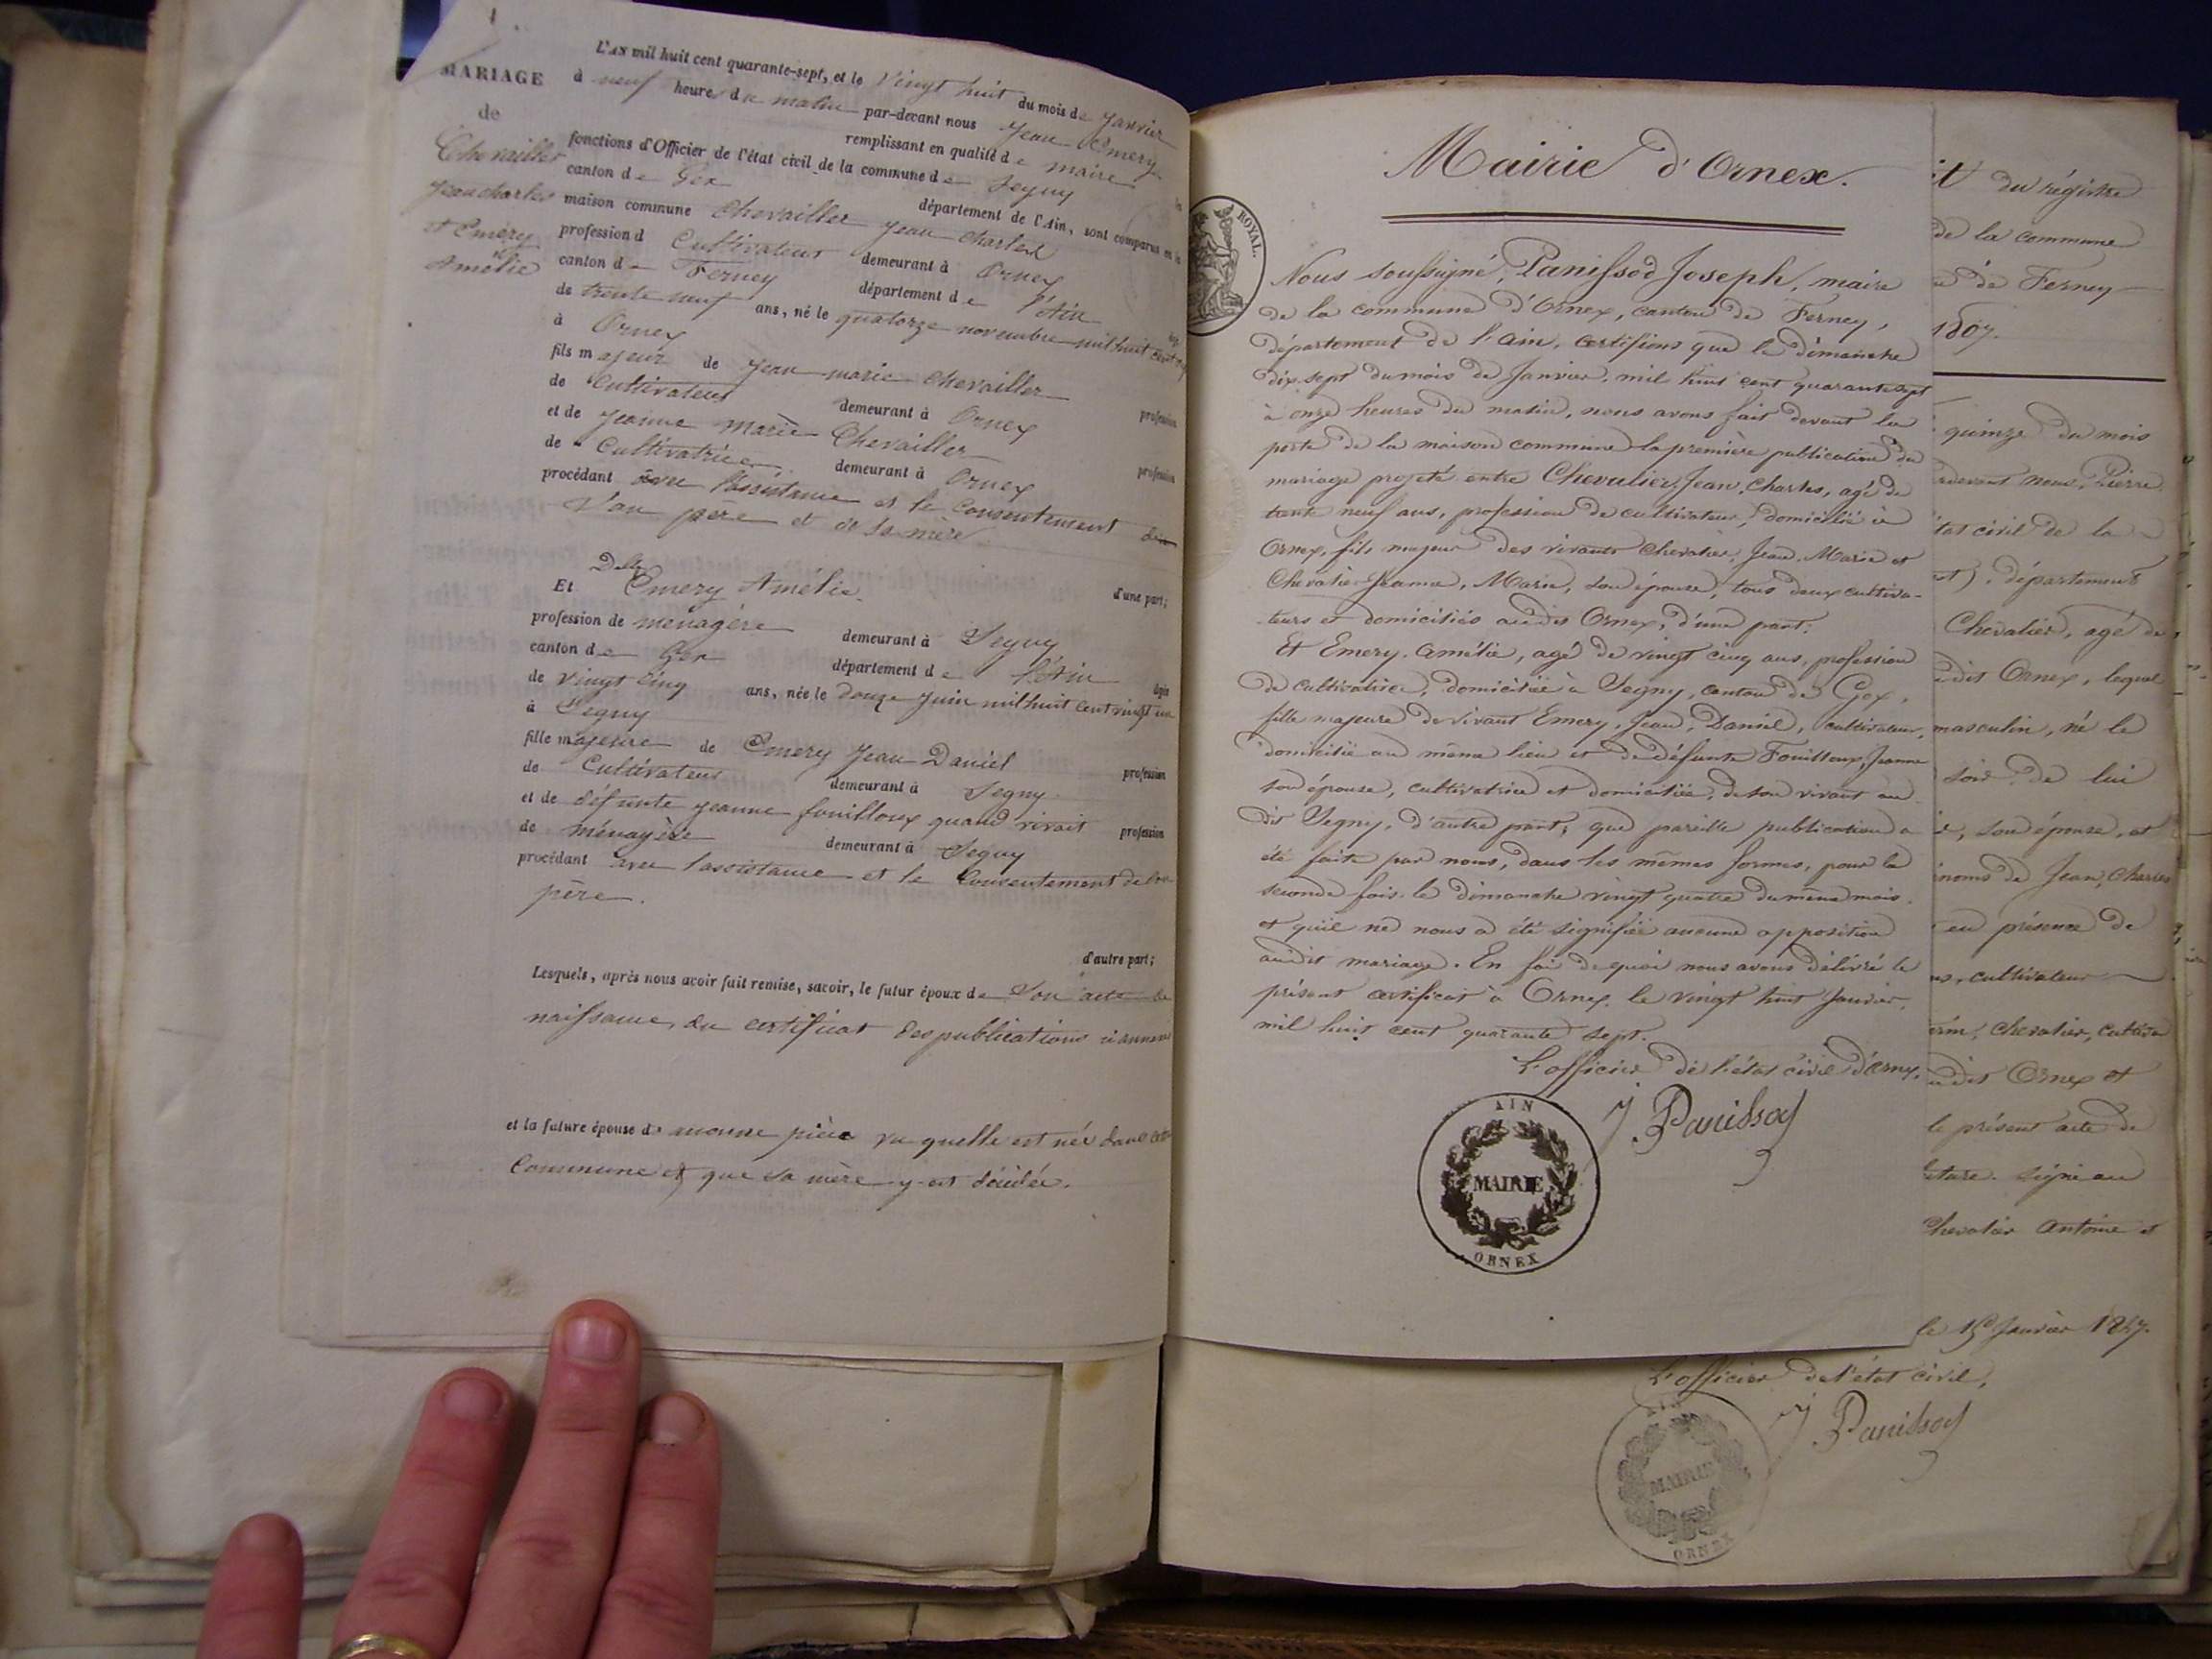 MARIAGE
de
Chevailler
Jean charles
et Emery
Amélie
L'AN mil huit cent quarante-sept, et le vingt huit du mois de Janvier
à neuf heures du matin par-devant nous Jean Emery
remplissant en qualité de maire
fonctions d'Officier de l'état civil de la commune de Segny
canton de Gex département de l'Ain, sont comparus en la
maison commune Chevailler Jean Charles
profession d Cultivateur demeurant à Ornex
canton de Ferney département de l'Ain
de trente neuf ans, né le quatorze novembre mil huit cent
à Ornex
fils majeur de Jean marie Chevailler profession
de Cultivateur demeurant à Ornex
et de Jeanne marie Chevailler profession
de Cultivatrice demeurant à Ornex
procédant avec l'assistance et le Consentement de
son père et de sa mère
d'une part;
Et Dlle Emery Amélie
profession de ménagère demeurant à Segny
canton de Gex département de l'Ain âgée
de vingt cinq ans, née le douze Juin mil huit cent vingt un
à Segny
fille majeure de Emery Jean Daniel profession
de Cultivateur demeurant à Segny
et de défunte Jeanne fouilloux quand vivait profession
de ménagère demeurant à Segny
procédant avec l'assistance et le Consentement de son
père.
d'autre part;
Lesquels, après nous avoir fait remise, savoir, le futur époux de Son acte de
naissance, du certificat des publications ci annexé
et la future épouse de aucune pièce vu quelle est née dans cette
Commune et que sa mère y est décédée.
Mairie d'Ornex.
ROYAL.
Nous soussigné, Panissod Joseph, maire
de la commune d'Ornex, canton de Ferney,
département de l'ain, certifions que le dimanche
dix sept du mois de Janvier, mil huit cent quarante sept
à onze heures du matin, nous avons fait devant la
porte de la maison commune la première publication du
mariage projeté entre Chevalier, Jean, Charles, agé de
trente neuf ans, profession de cultivateur, domicilié à
Ornex, fils majeur des vivants Chevalier, Jean, Marie et
Chevalier Jeanne, Marie, son épouse, tous deux cultiva-
teurs et domiciliés audit Ornex, d'une part;
Et Emery, Amélie, agé de vingt cinq ans, profession
de cultivatrice, domiciliée à Segny, canton de Gex,
fille majeure de vivant Emery, Jean, Daniel, cultivateur,
domicilié au même lieu et de défunte Fouilloux, Jeanne
son épouse, cultivatrice et domiciliée, de son vivant au
dit Segny, d'autre part; que pareille publication a
été faite par nous, dans les mêmes formes, pour la
seconde fois, le dimanche vingt quatre du même mois,
et qu'il ne nous a été signifié aucune opposition
audit mariage. En foi de quoi nous avons délivré le
présent certificat à Ornex, le vingt huit Janvier,
mil huit cent quarante sept.
L'officier de l'état civil d'Ornex,
J Panissod
AIN
MAIRIE
ORNEX
du régistre
de la commune
de Ferney
1807.
quinze du mois
devant nous, Pierre
état civil de la
département
Chevalier, agé de
dit Ornex, lequel
masculin, né le
soir de lui
son épouse, et
noms de Jean, Charles
en présence de
cultivateur
chevalier, cultiva
audit Ornex et
le présent acte de
lecture. Signé au
Chevalier Antoine et
le 15 Janvier 1847.
L'officier de l'état civil,
J Panissod
AIN
MAIRIE
ORNEX